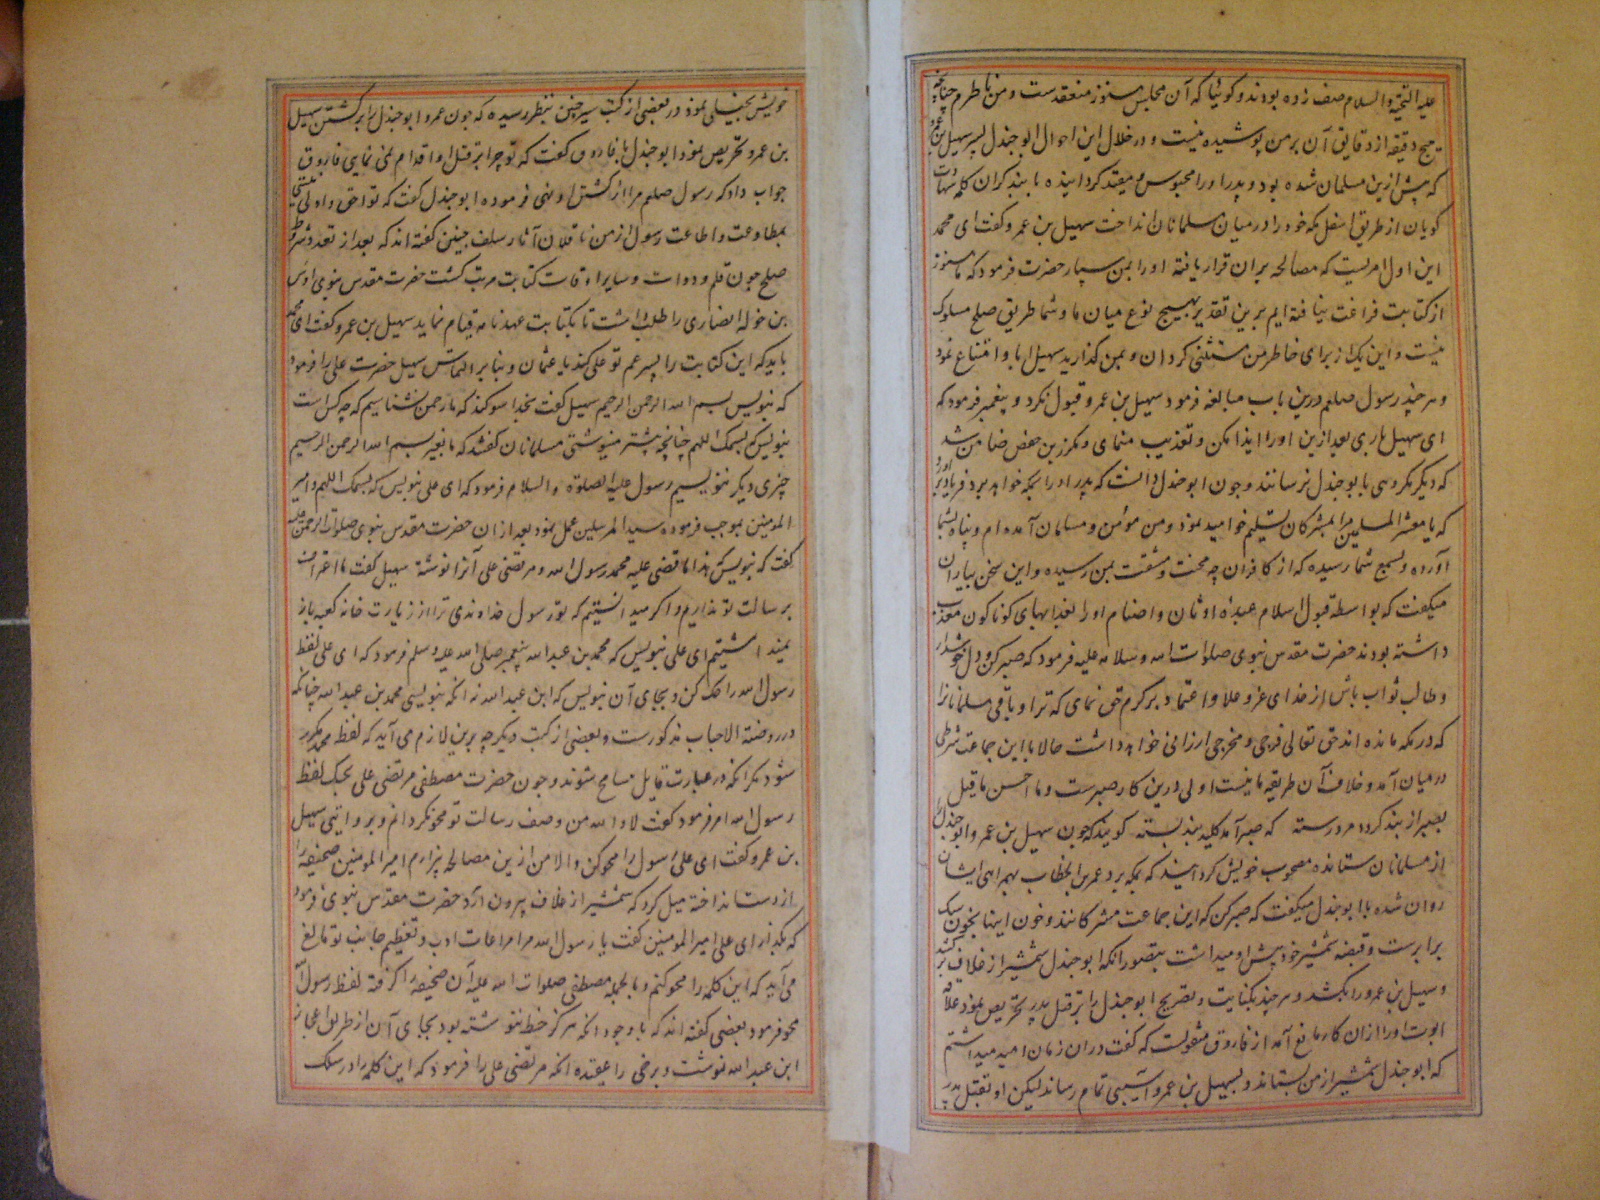 علیه التحیة والسلام صف زده بودند و کوئیا که آن مجلس هنوز منعقدست و من ناظرم چنانچه
هیچ دقیقه از دقایق آن بر من پوشیده نیست و در خلال این احوال ابوجندل پسر سهیل بن عمرو
که پیش ازین مسلمان شده بود و پدر او را محبوس و مقید کردانیده با بند کران کلمه شهادت
کویان از طریق اسفل مکه خود را در میان مسلمانان انداخت سهیل بن عمرو کفت ای محمد
این اول امریست که مصالحه بران قرار یافته او را بمن سپار حضرت فرمود که ما هنوز
از کتابت فراغت نیافته ایم برین تقدیر بهیچ نوع میان ما و شما طریق صلح مسلوک
نیست و این یک را از برای خاطر من مستثنی کردان و بمن کذارید سهیل ابا و امتناع نمود
و هر چند رسول صلعم درین باب مبالغه فرمود سهیل بن عمرو قبول نکرد و پیغمبر فرمود که
ای سهیل باری بعد ازین او را ایذا مکن و تعذیب منمای و مکرز بن حفص ضامن شد
که دیکر مکروهی بابوجندل نرسانند و چون ابوجندل دانست که پدر او را بمکه خواهد برد فریاد براورد
که یا معشر المسلمین مرا بمشرکان تسلیم خواهید نمود و من مؤمن و مسلمان آمده ام و پناه بشما
آورده و بسمع شما رسیده که از کافران چه محنت و مشقت بمن رسیده و این سخن بیاران
میکفت که بواسطه قبول اسلام عبده اوثان و اصنام او را بعذابهای کوناکون معذب
داشته بودند حضرت مقدس نبوی صلوات الله و سلامه علیه فرمود که صبر کن و دل خوشدار
و طالب ثواب باش از خدای عز و علا و اعتماد بر کرم حق نمای که ترا و باقی مسلمانانرا
که در مکه مانده اند حق تعالی فرجی و مخرجی ارزانی خواهد داشت حالا با این جماعت شرطی
در میان آمد و خلاف آن طریقه ما نیست اولی درین کار صبرست و ما احسن ما قیل
بصبر از بند کردد مرد رسته که صبر آمد کلید بند بسته کویند که چون سهیل بن عمرو ابوجندل را
از مسلمانان ستانده مصحوب خویش کردانید که بمکه برد عمر بن الخطاب بهمراهی ایشان
روان شده با ابوجندل میکفت که صبر کن که این جماعت مشرکانند و خون اینها بخون سک
برابرست و قبضه شمشیر خود پیش او میداشت بتصور انکه ابوجندل شمشیر از غلاف برکشد
و سهیل بن عمرو را بکشد و هر چند بکنایت و تصریح ابوجندل را بر قتل پدر تحریص نمود علاقه
ابوت او را ازان کار مانع آمد از فاروق منقولست که کفت دران زمان امید میداشتم
که ابوجندل شمشیر از من بستاند و بسهیل بن عمرو آسیبی تمام رساند لیکن او بقتل پدر
خویش بخیلی نمود و در بعضی از کتب سیر چنین بنظر رسیده که چون عمرو ابوجندل را بر کشتن سهیل
بن عمرو تحریص نمود ابوجندل با فاروق کفت که تو چرا بر قتل او اقدام نمی نمایی فاروق
جواب داد که رسول صلعم مرا از کشتن او نهی فرموده ابوجندل کفت که تو احق و اولی نیستی
بمطاوعت و اطاعت رسول از من ناقلان آثار سلف چنین کفته اند که بعد از تعدد شروط
صلح چون قلم و دوات و سایر ادوات کتابت مرتب کشت حضرت مقدس نبوی اوس
بن خولی انصاری را طلب داشت تا بکتابت عهدنامه قیام نماید سهیل بن عمرو کفت ای محمد
باید که این کتابت را پسر عم تو علی کند یا عثمان و بنابر التماس سهیل حضرت علی را فرمود
که بنویس بسم الله الرحمن الرحیم سهیل کفت بخدا سوکند که ما رحمن نشناسیم که چه کس است
بنویس بسمک اللهم چنانچه پیشتر مینوشتی مسلمانان کفتند که ما بغیر بسم الله الرحمن الرحیم
چیزی دیکر ننویسیم رسول علیه الصلوة والسلام فرمود که ای علی بنویس که بسمک اللهم و امیر
المومنین بموجب فرموده سید المرسلین عمل نمود بعد ازان حضرت مقدس نبوی صلوات الرحمن علیه
کفت که بنویس هذا ما قضی علیه محمد رسول الله و مرتضی علی آنرا نوشته سهیل کفت ما اعتراف
برسالت تو نداریم و اکر میدانستیم که تو رسول خداوندی ترا از زیارت خانه کعبه باز
نمیداشتیم ای علی بنویس که محمد بن عبد الله پیغمبر صلی الله علیه وسلم فرمود که ای علی لفظ
رسول الله را حک کن و بجای آن بنویس که ابن عبد الله نه انکه بنویسی محمد بن عبد الله چنانکه
در روضة الاحباب مذکورست و بعضی از کتب دیکر چه برین لازم می آید که لفظ محمد مکرر
شود مکر آنکه در عبارت قایل تسامح شوند و چون حضرت مصطفی مرتضی علی بحک لفظ
رسول الله امر فرمود کفت لا والله من وصف رسالت تو محو نکردانم و بروایتی سهیل
بن عمرو کفت ای علی رسول را محو کن والا من ازین مصالحه بیزارم امیر المومنین صحیفه را
از دست انداخته میل کرد که شمشیر از غلاف بیرون آرد حضرت مقدس نبوی فرمود
که بکذار ای علی امیر المومنین کفت یا رسول الله مرا مراعات ادب و تعظیم جانب تو مانع
می آید که این کلمه را محو کنم و بالجمله مصطفی صلوات الله علیه آن صحیفه را کرفته لفظ رسول الله
محو فرمود بعضی کفته اند که با وجود انکه هرکز خط ننوشته بود بجای آن از طریق اعجاز
ابن عبد الله نوشت و برخی را عقیده انکه مرتضی علی را فرمود که این کلمه را در سلک